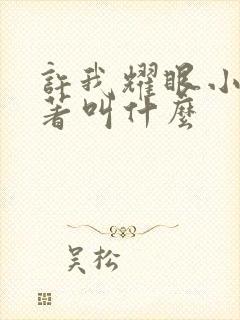 許我耀眼小
著叫什麼
吴松